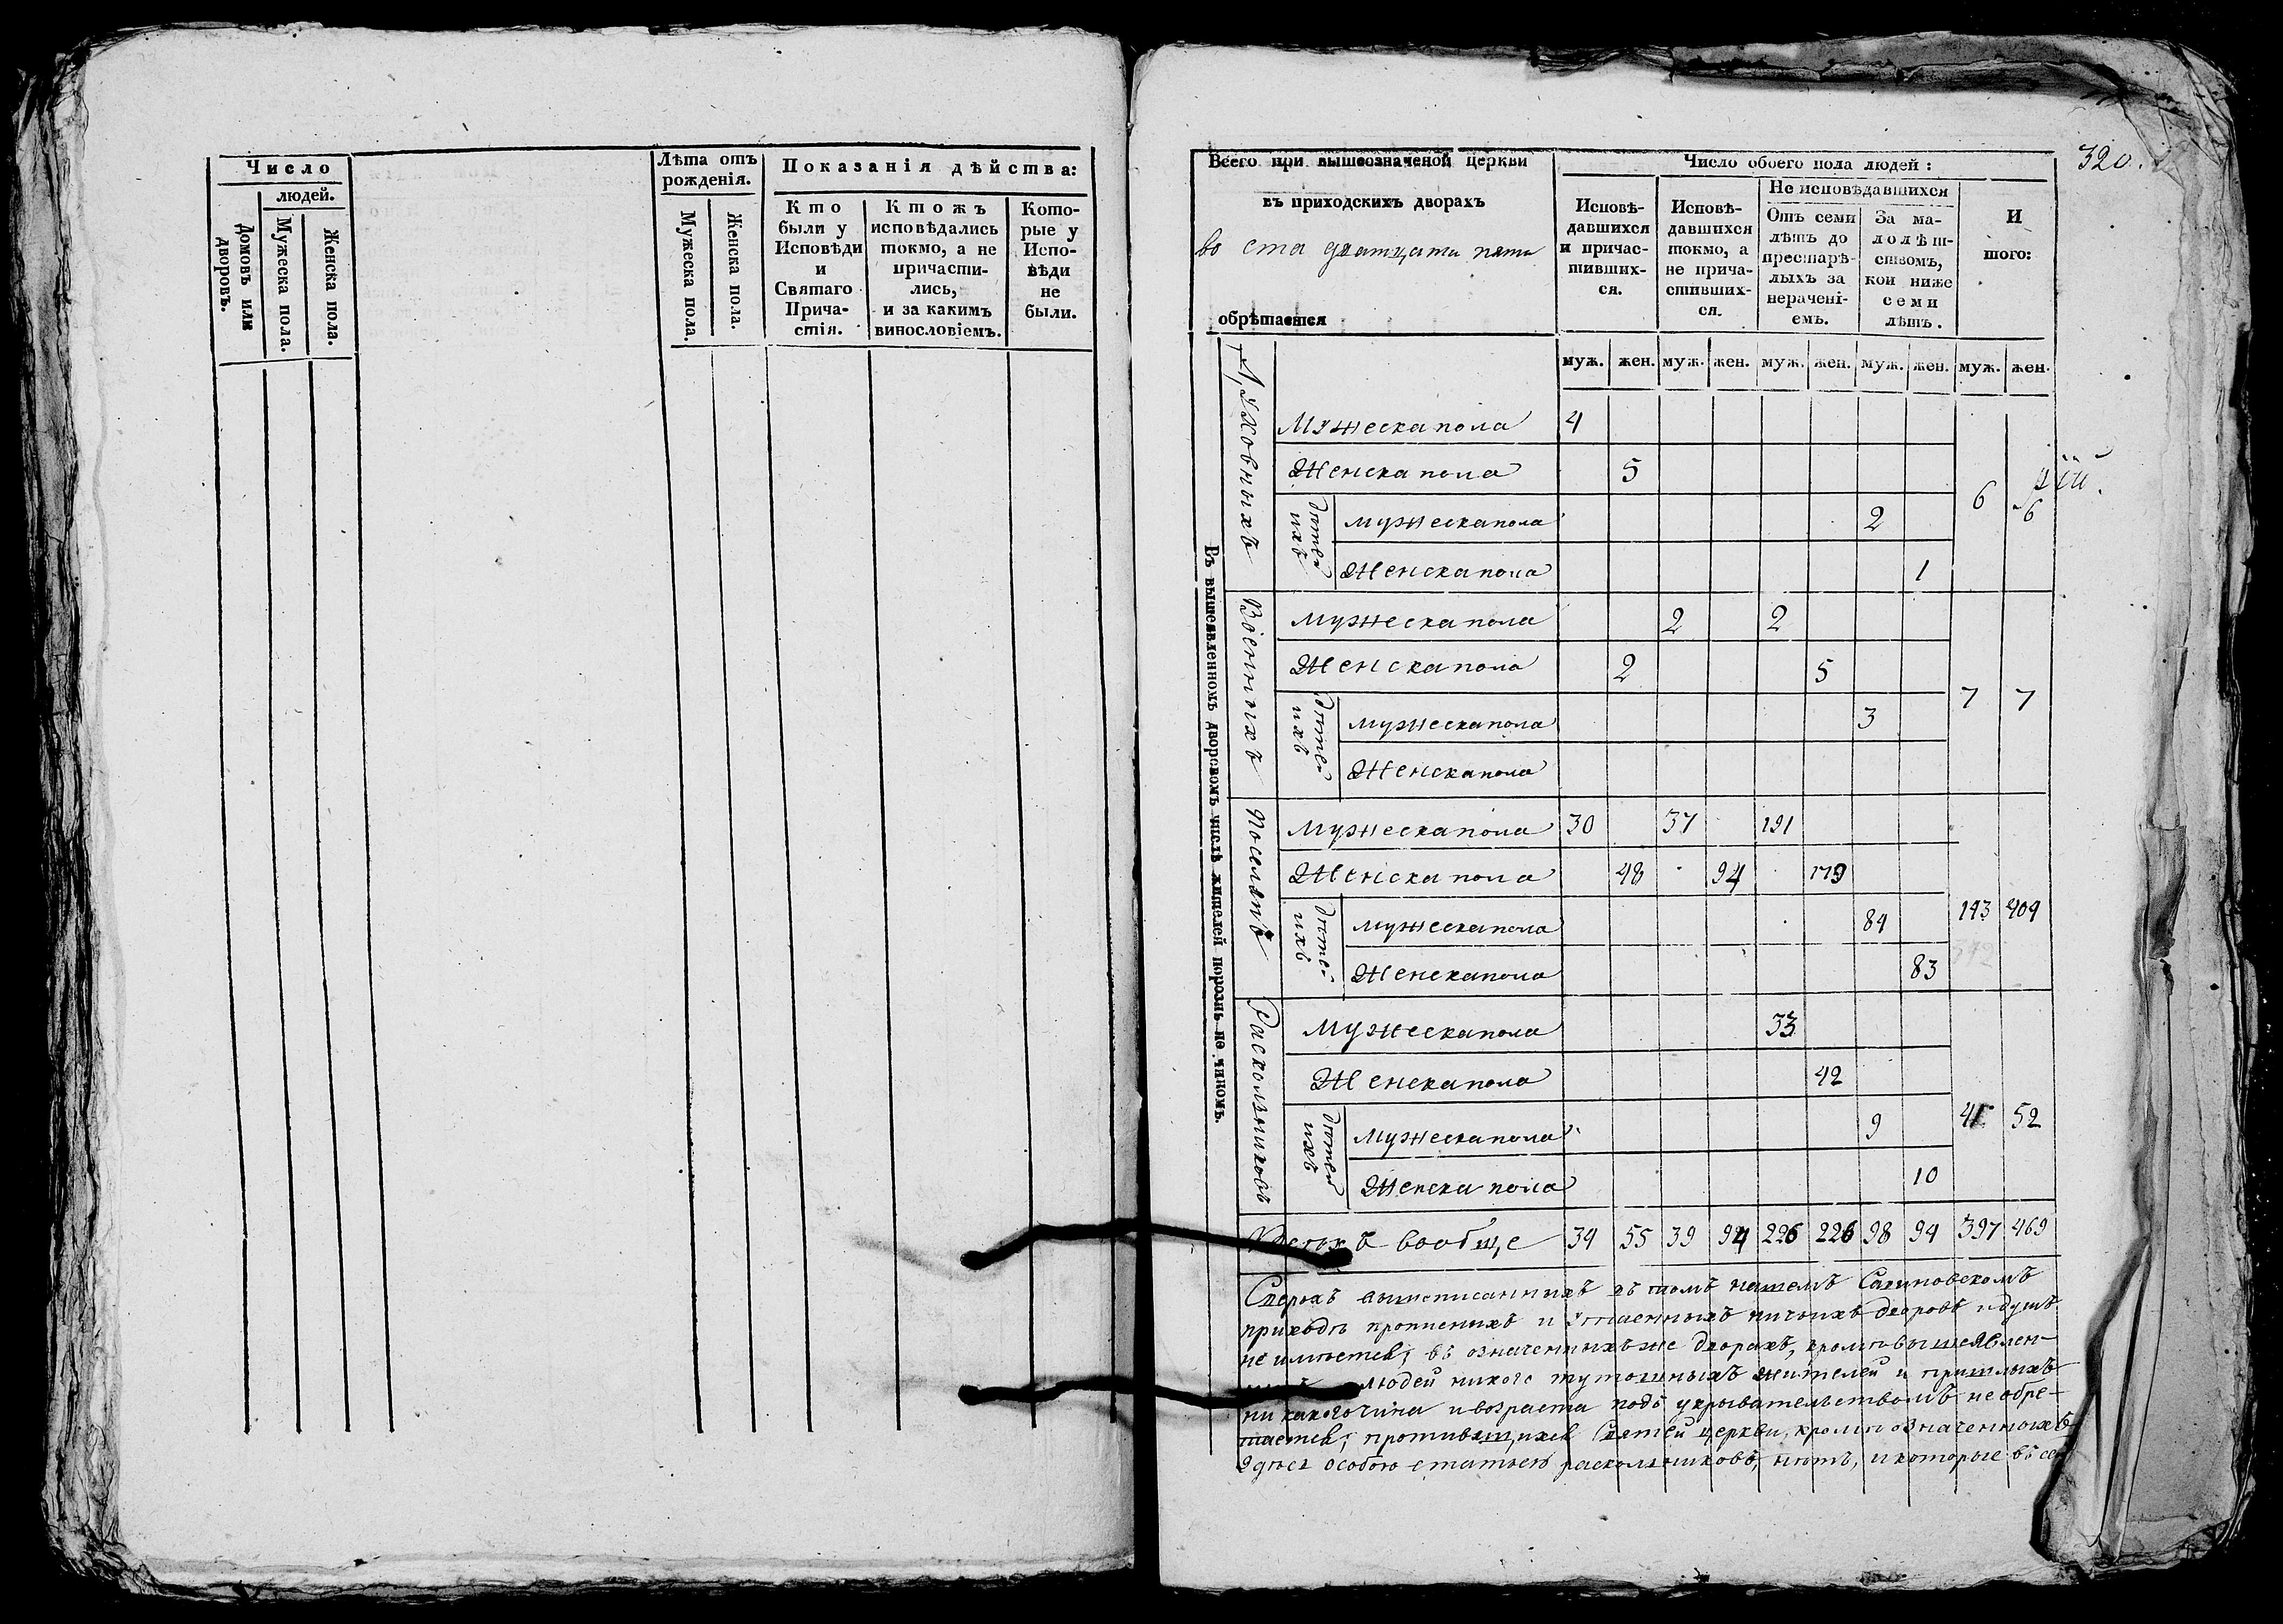 Число
людей.
Домовъ или дворовъ.
Мужеска пола.
Женска пола.
Лѣта отъ рожденія.
Мужеска пола.
Женска пола.
Показанія дѣйства:
Кто были у Исповѣди и Святаго Причастія.
Ктожъ исповѣдались токмо, а не причастились, и за какимъ винословіемъ.
Которые у Исповѣди не были.
320.
Всего при вышеозначеной церкви
въ приходскихъ дворахъ
во ста дватцати пяти
обрѣтается
Число обоего пола людей:
Исповѣ-
давшихся
и причас-
тивших-
ся.
Исповѣ-
давшихся
токмо, а
не прича-
стивших-
ся.
Не исповѣдавшихся
Отъ семи
лѣтъ до
престарѣ-
лыхъ за
нерачені-
емъ.
За ма-
лолѣт-
ствомъ,
кои ниже
семи
лѣтъ.
И
того:
муж. жен. муж. жен. муж. жен. муж. жен. муж. жен.
Въ вышеявленномъ дворовомъ числѣ жителей порознь по чиномъ.
Духовныхъ
Мужеска пола 4
Женска пола 5
дѣтей ихъ
мужеска пола 2
Женска пола 1
6 6
Военныхъ
Мужеска пола 2 2
Женска пола 2 5
дѣтей ихъ
мужеска пола 3
Женска пола
7 7
Поселянъ
Мужеска пола 30 37 191
Женска пола 48 94 179
дѣтей ихъ
мужеска пола 84
Женска пола 83
404
Раскольниковъ
Мужеска пола 33
Женска пола 42
дѣтей ихъ
мужеска пола 9
Женска пола 10
52
Всѣхъ вообще 34 55 39 94 226 226 98 94 397 469
Сверхъ вышеписанныхъ въ томъ нашемъ
приходѣ прописныхъ и утаенныхъ ничьихъ дворовъ и душъ
не имѣется; въ означенныхъ же дворахъ, кромѣ вышеявлен-
людей никого тутошныхъ жителей и пришлыхъ
никакого чина и возраста подъ укрывательствомъ не обре-
тается; противящихся Святей церкви, кромѣ означенныхъ
здѣсь особою статьею раскольниковъ, нѣтъ, и которые въ сей